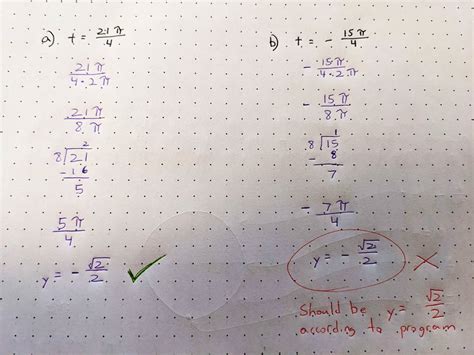 a) t = 21π/4
21π/4·2π
21π/8π
2
8⟌21
-16
5
5π/4
y = - √2/2 ✓
b) t = - 15π/4
- 15π/4·2π
- 15π/8π
1
8⟌15
- 8
7
- 7π/4
y = - √2/2 ✗
Should be y = √2/2
according to program